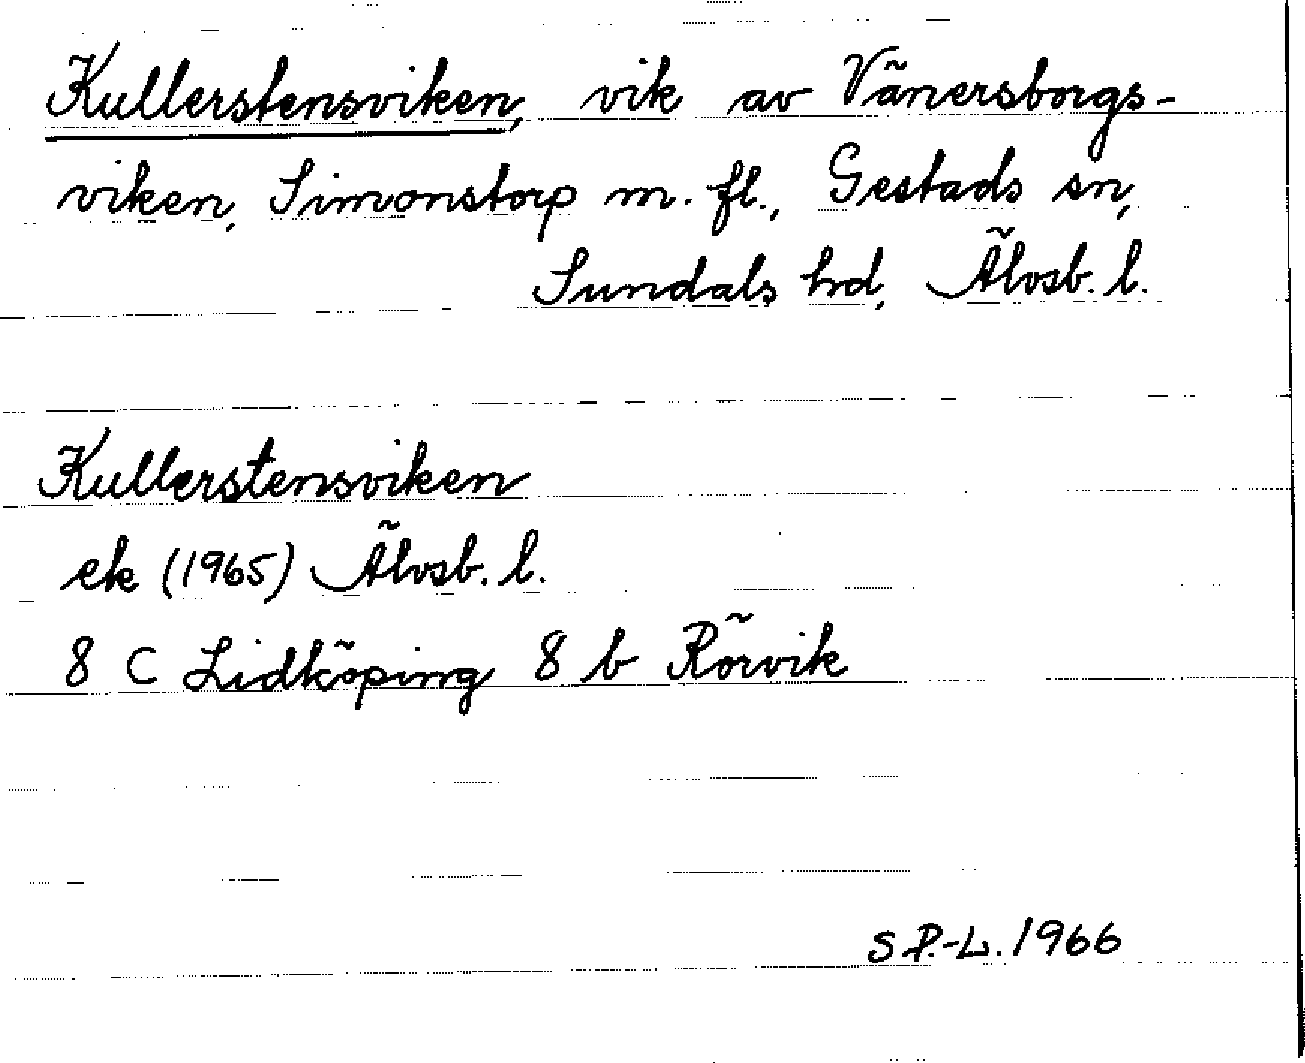 Kullerstensviken, vik av Vänersborgs-
viken, Simonstorp m. fl., Gestads sn,
Sundals hd, Älvsb. l.
Kullerstensviken
ek (1965) Älvsb. l.
8 C Lidköping 8 b Rörvik
S P.-L. 1966